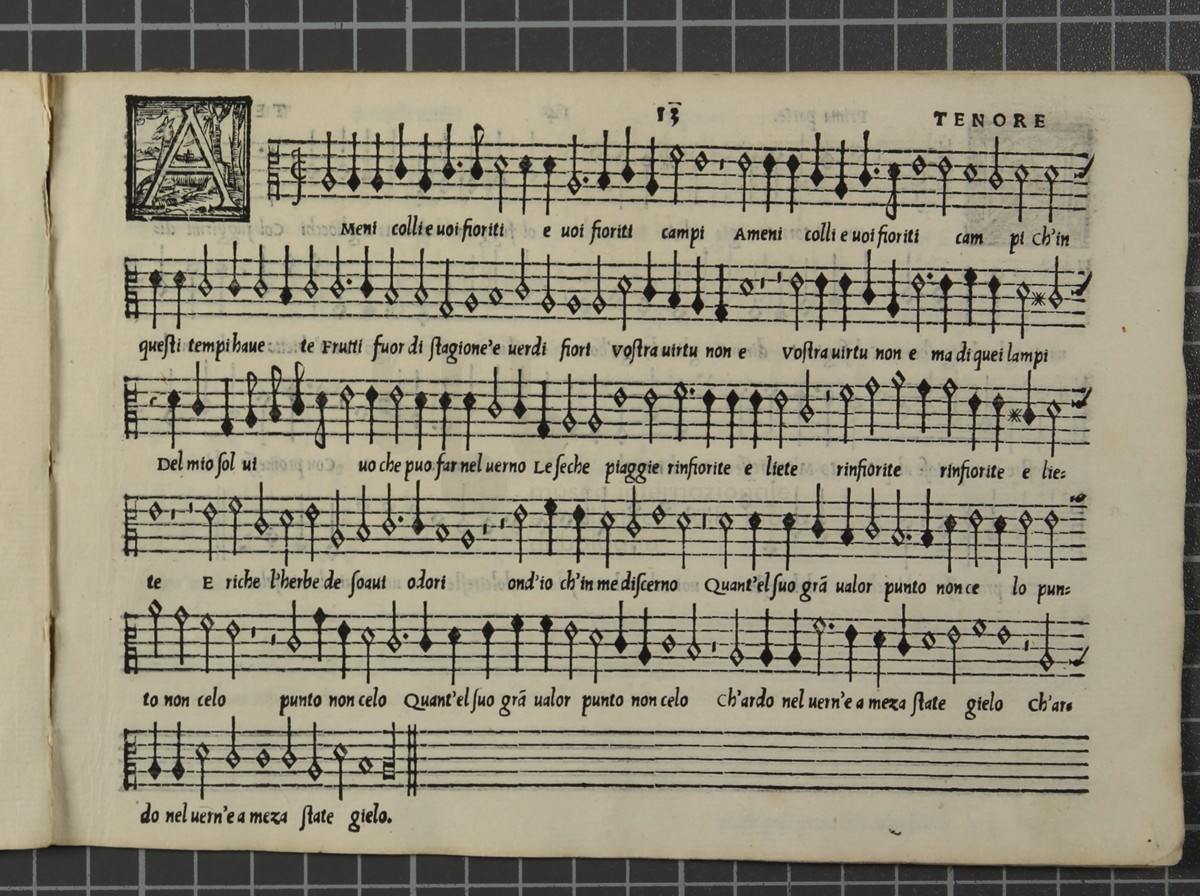 13
TENORE
A Meni colli e uoi fioriti e uoi fioriti campi Ameni colli e uoi fioriti cam pi Ch'in
queſti tempi haue te Frutti fuor di ſtagione'e uerdi fiori Voſtra uirtu non e Voſtra uirtu non e ma di quei lampi
Del mio ſol ui uo che puo far nel uerno Le ſeche piaggie rinfiorite e liete rinfiorite rinfiorite e lie=
te E riche l'herbe de ſoaui odori ond'io ch'in me diſcerno Quant'el ſuo grã ualor punto non ce lo pun=
to non celo punto non celo Quant'el ſuo grã ualor punto non celo Ch'ardo nel uern'e a meza ſtate gielo Ch'ar=
do nel uern'e a meza ſtate gielo.